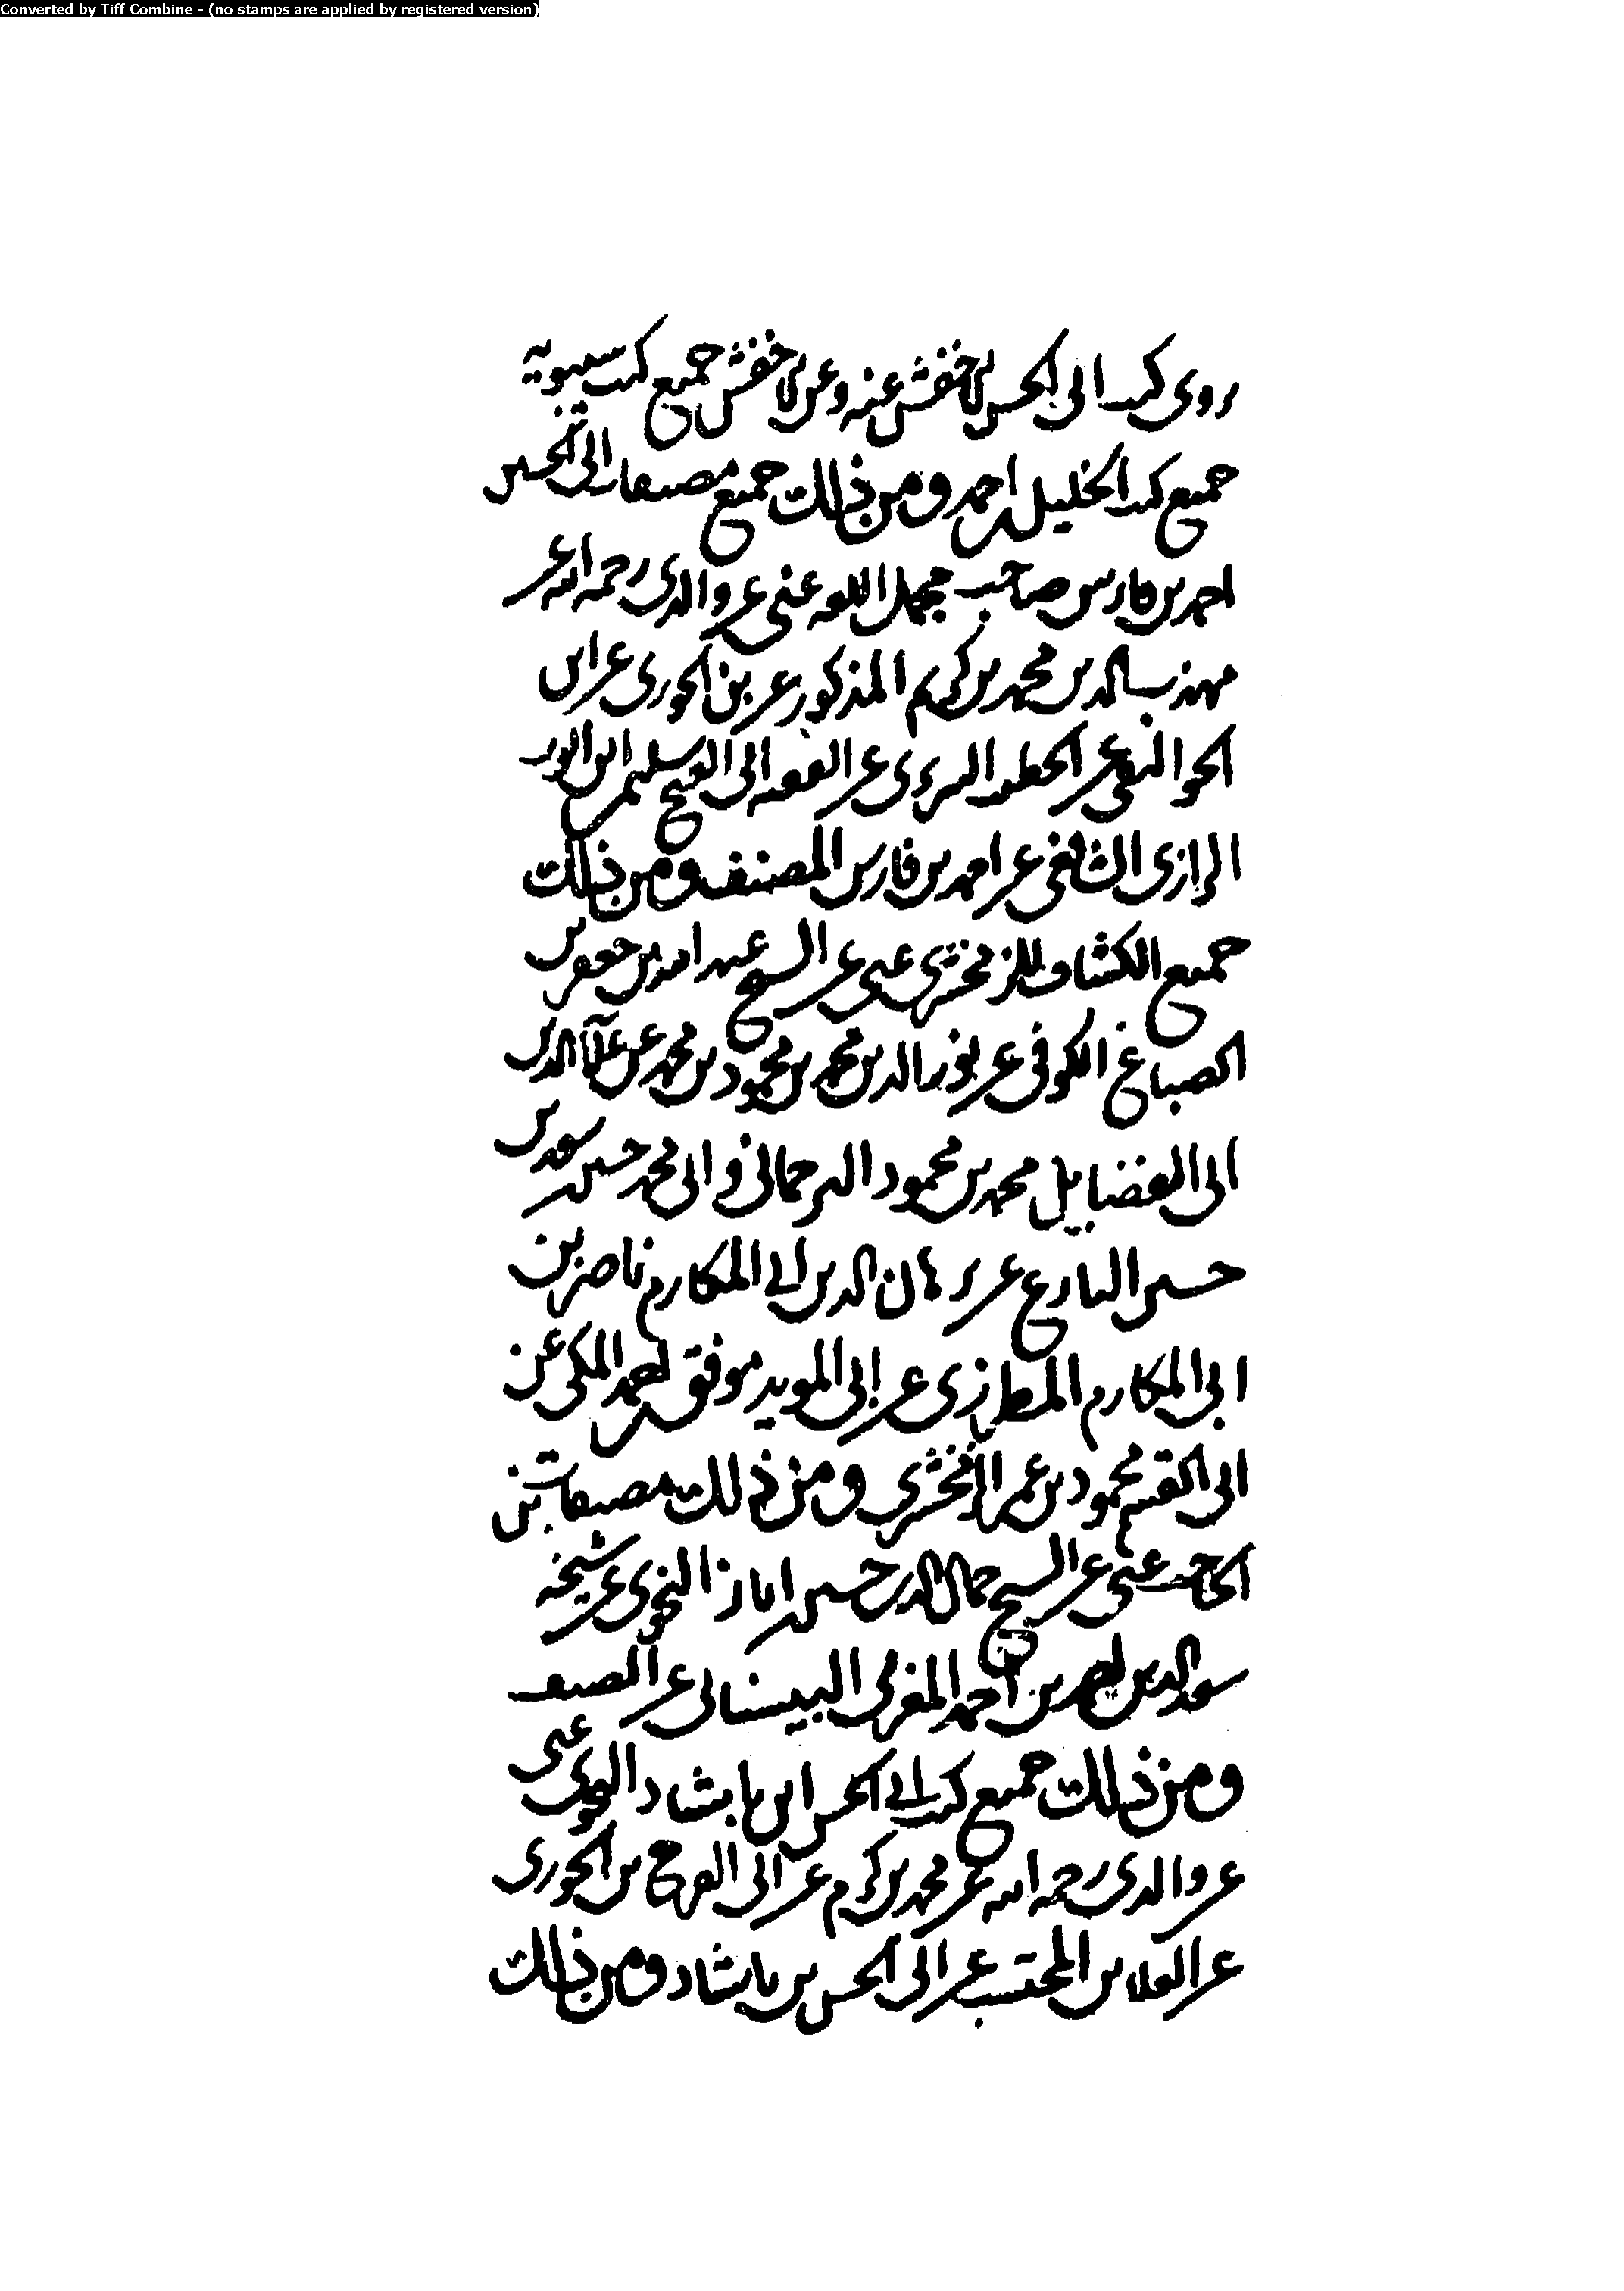 Converted by Tiff Combine - (no stamps are applied by registered version)
روى كتب ابى الحسن الاخفش عنه وعن الاخفش جميع كتب سيبويه
جميع كتب الخليل بن احمد ومن ذلك جميع مصنفات ابى الحسين
احمد بن فارس صاحب مجمل اللغه عنى عن والدى رحمه الله عن
مهذب الدين محمد بن كرم المذكور عن بن الجوزى عن ابن
الجواليقى عن الخطيب التبريزى عن الفقيه ابى الفتح سليم بن ايوب
الرازى الشافعى عن احمد بن فارس المصنف ومن ذلك
جميع الكشاف للزمخشرى عنى عن الشيخ عبد الله بن جعفر بن
الصباغ الكوفى عن نور الدين محمد بن محمود بن محمد عن علآ الدين
ابى الفضايل محمد بن محمود الترجمانى وابى محمد حسين بن سعد بن
حسين البارع عن برهان الدين ابى المكارم ناصر بن
ابى المكارم المطرزى عن ابى المويد موفق بن احمد المكى عن
ابى القسم محمود بن عمر الزمخشرى ومن ذلك مصنفات بن
الحاجب عنى عن الشيخ جمال الدين حسين بن اياز النحوى عن شيخه
سعد الدين احمد بن احمد المغربى البيسانى عن المصنف
ومن ذلك جميع كتب ابى الحسن ابن بابشاد النحوى عنى
عن والدى رحمه الله عن محمد بن كرم عن ابى الفرج بن الجوزى
عن بن المحتسب عن ابى الحسن بن بابشاد ومن ذلك